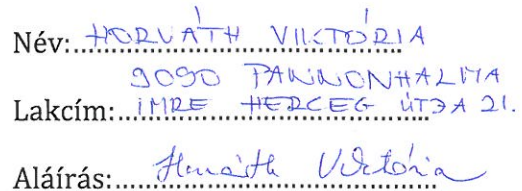 Név: HORVÁTH VIKTÓRIA
9090 PANNONHALMA
Lakcím: IMRE HERCEG ÚTJA 21.
Aláírás: Horváth Viktória